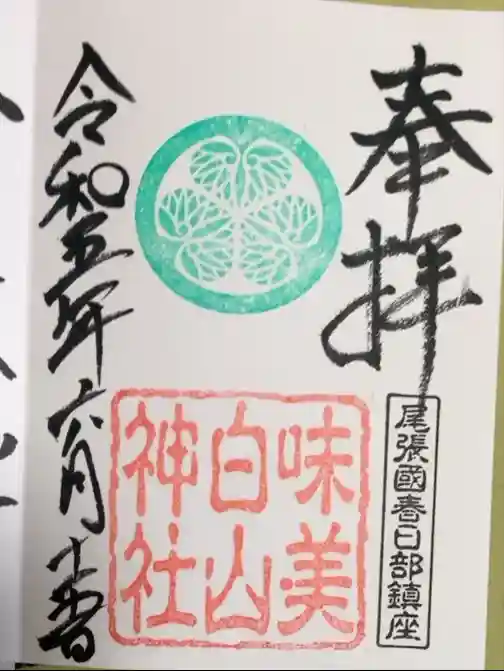 奉拝
尾張國春日部鎮座
味美
白山
神社
令和五年六月